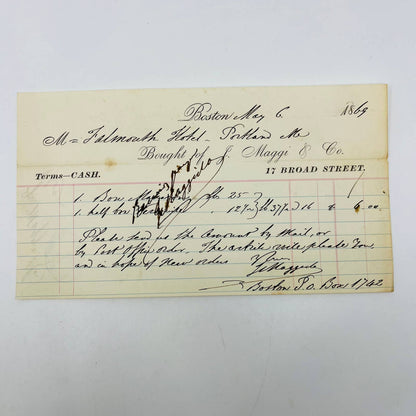 Boston May 6 1869
M= Falmouth Hotel Portland Me
Bought of J. Maggi & Co.
Terms—CASH. 17 BROAD STREET.
1 Box 25
1 half box 12 37 16 6 00
Please send us the Amount by Mail, or
by Post Office order. The article will please You
and in hope of New orders
Boston P.O. Box 1742